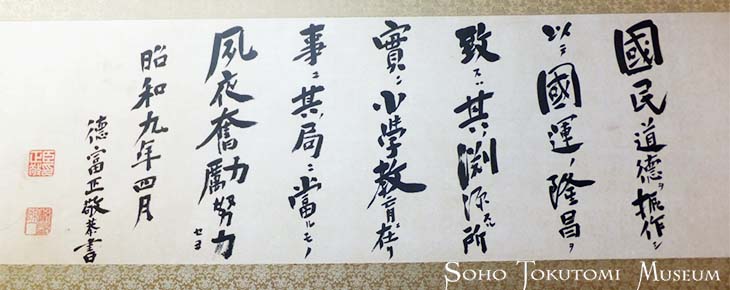 國民道德ヲ振作シ
以テ國運ノ隆昌ヲ
致スハ其ノ淵源スル所
實ニ小學教育ニ在リ
事ニ其ノ局ニ當ルモノ
夙夜奮勵努力セヨ
昭和九年四月
德富正敬恭書
SOHO TOKUTOMI MUSEUM